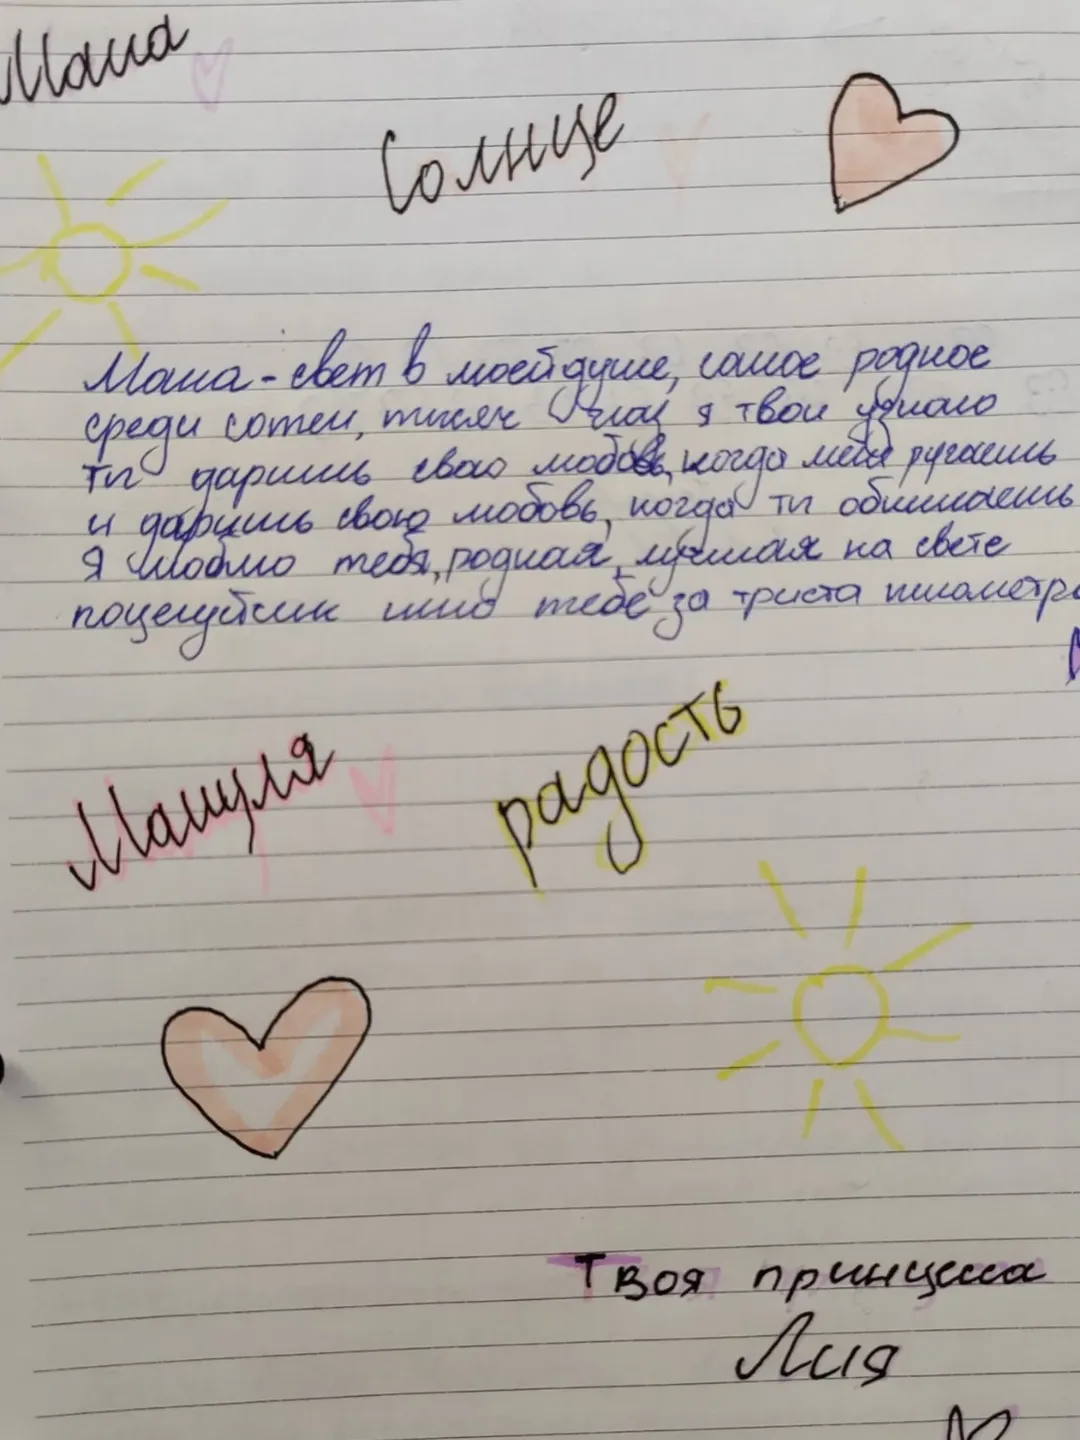 Мама
Солнце
Мама - свет в моей душе, самое родное
среди сотен, тысяч глаз я твои узнаю
ты даришь свою любовь, когда меня ругаешь
и даришь свою любовь, когда ты обнимаешь
Я люблю тебя, родная, лучшая на свете
поцелуйчик шлю тебе за триста километро
Мамуля
радость
Твоя принцесса
Лия